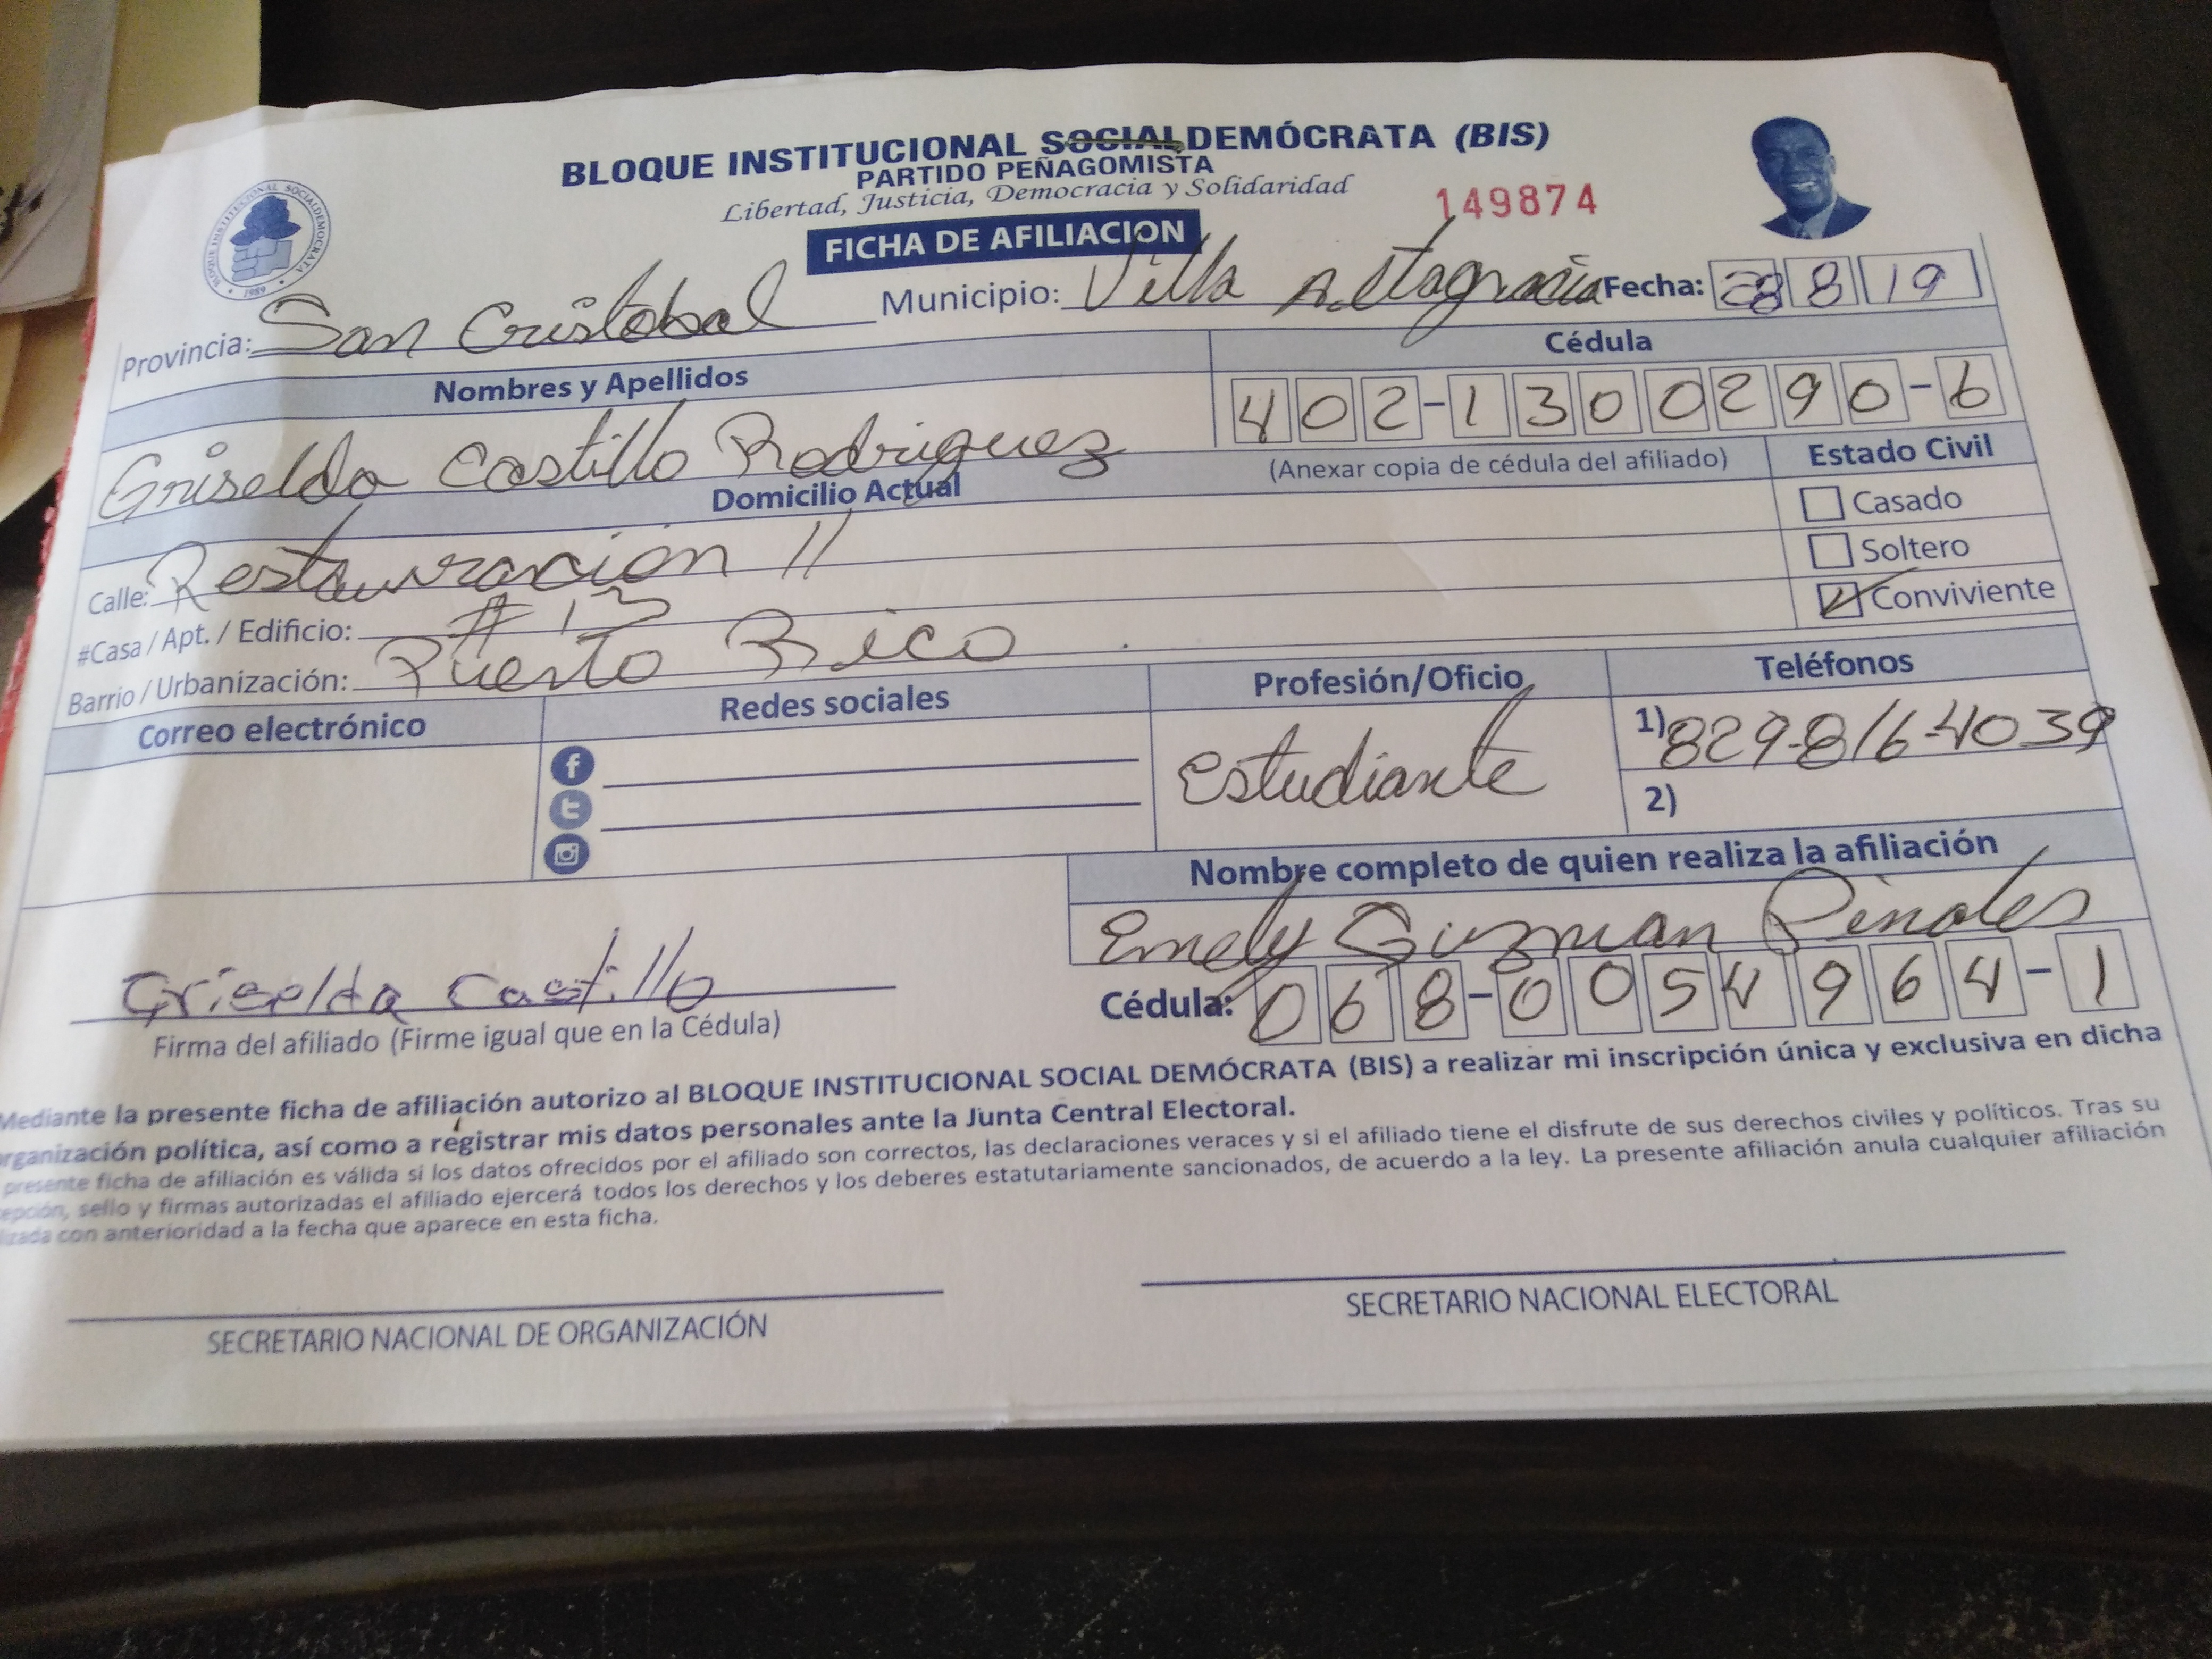 BLOQUE INSTITUCIONAL SOCIALDEMÓCRATA (BIS)
PARTIDO PEÑAGOMISTA
Libertad, Justicia, Democracia y Solidaridad
149874
FICHA DE AFILIACION
BLOQUE INSTITUCIONAL SOCIALDEMOCRATA
1989
Provincia: San Cristobal Municipio: Villa Altagracia Fecha: 28 8 19
Nombres y Apellidos Cédula
Griselda Castillo Rodriguez 402-1300290-6
(Anexar copia de cédula del afiliado) Estado Civil
Domicilio Actual
Casado
Calle: Restauracion 11 Soltero
#Casa / Apt. / Edificio: # 13 Conviviente
Barrio / Urbanización: Puerto Rico
Correo electrónico Redes sociales Profesión/Oficio Teléfonos
Estudiante 1) 829-816-4039
2)
Nombre completo de quien realiza la afiliación
Emely Guzman Pinales
Griselda Castillo Cédula: 068-0054964-1
Firma del afiliado (Firme igual que en la Cédula)
Mediante la presente ficha de afiliación autorizo al BLOQUE INSTITUCIONAL SOCIAL DEMÓCRATA (BIS) a realizar mi inscripción única y exclusiva en dicha
organización política, así como a registrar mis datos personales ante la Junta Central Electoral.
presente ficha de afiliación es válida si los datos ofrecidos por el afiliado son correctos, las declaraciones veraces y si el afiliado tiene el disfrute de sus derechos civiles y políticos. Tras su
sello y firmas autorizadas el afiliado ejercerá todos los derechos y los deberes estatutariamente sancionados, de acuerdo a la ley. La presente afiliación anula cualquier afiliación
con anterioridad a la fecha que aparece en esta ficha.
SECRETARIO NACIONAL DE ORGANIZACIÓN SECRETARIO NACIONAL ELECTORAL